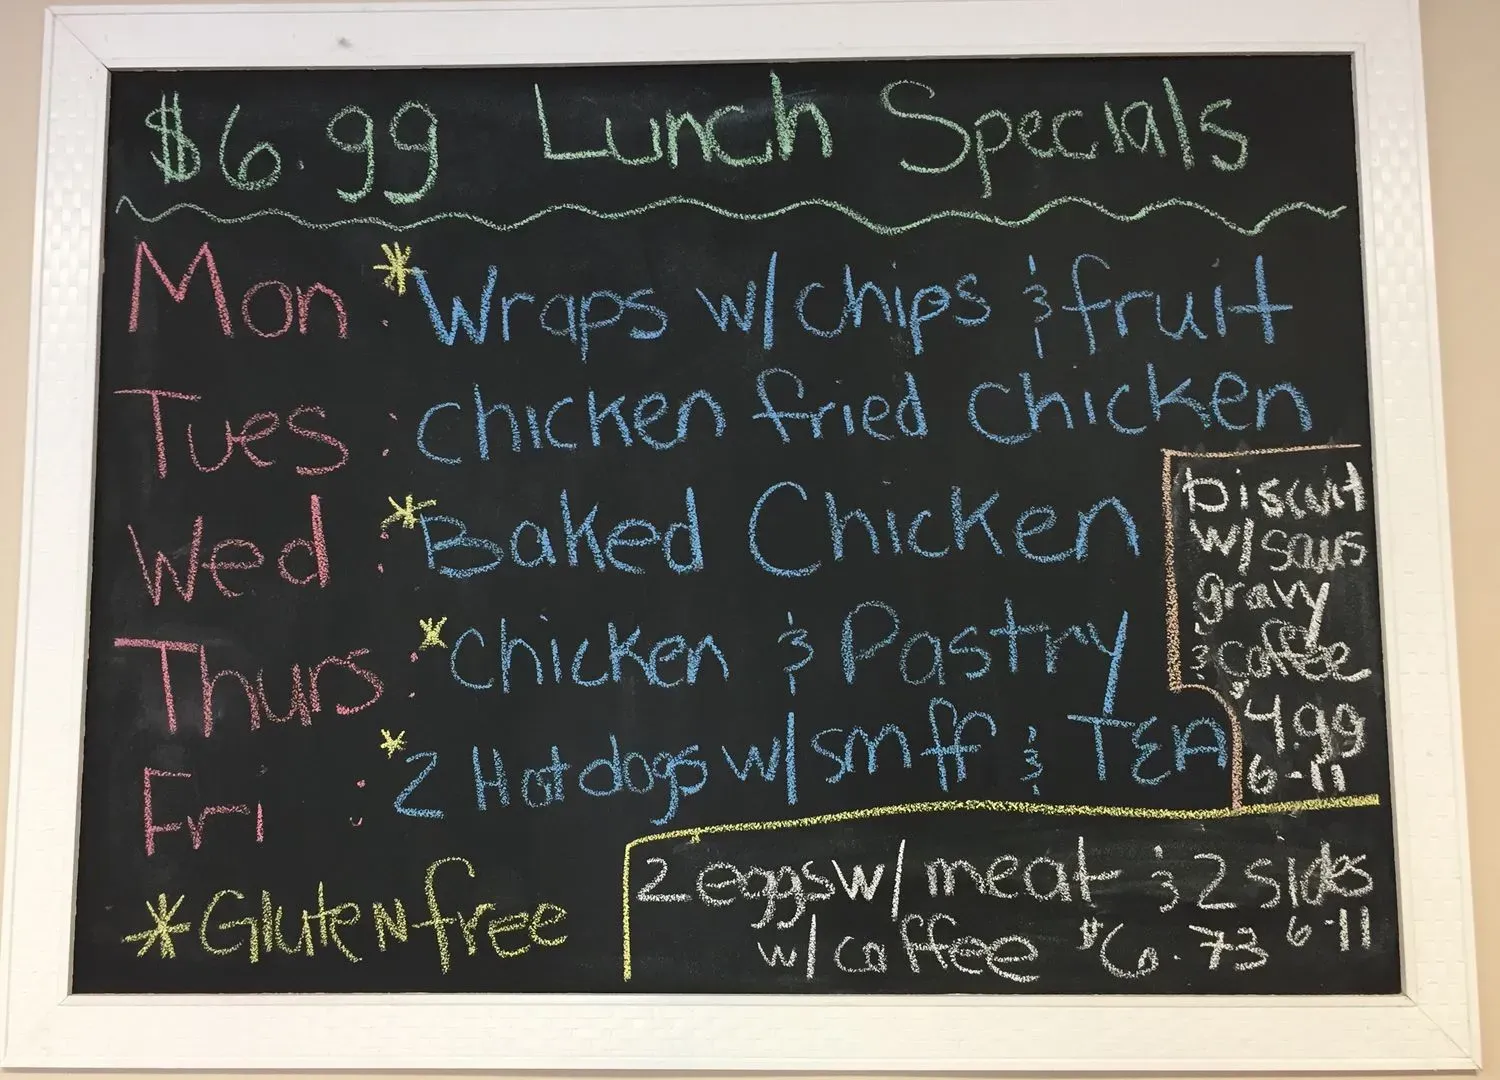 $6.99 Lunch Specials
Mon : *Wraps w/chips & fruit
Tues : Chicken fried Chicken
Wed : *Baked Chicken
Thurs : *Chicken & Pastry
Fri : *2 Hotdogs w/smff & TEA
*Gluten free
biscuit
w/saus
gravy
& coffee
$4.99
6-11
2 eggs w/ meat & 2 sides
w/ coffee $6.73 6-11